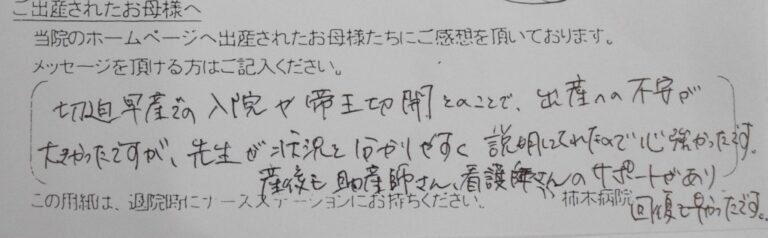 ご出産されたお母様へ
当院のホームページへ出産されたお母様たちにご感想を頂いております。
メッセージを頂ける方はご記入ください。
切迫早産での入院や帝王切開とのことで、出産への不安が
大きかったですが、先生が状況を分かりやすく説明してくれたので心強かったです。
産後も助産師さん、看護師さんのサポートがあり
回復も早かったです。
この用紙は、退院時にナースステーションにお持ちください。 柿木病院